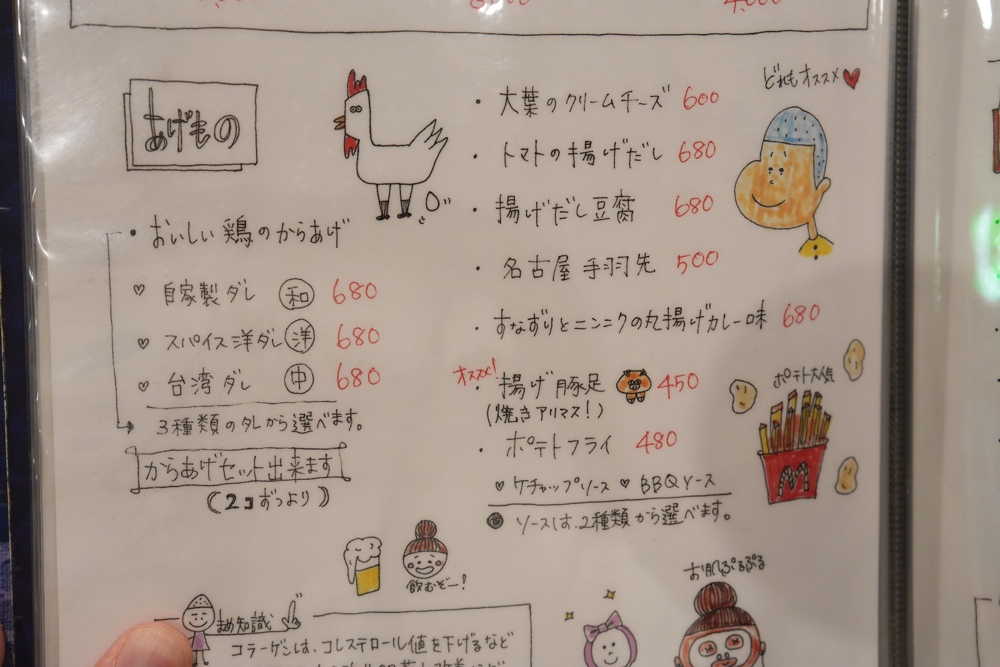 あげもの
・おいしい鶏のからあげ
♡ 自家製ダレ (和) 680
♡ スパイス洋ダレ (洋) 680
♡ 台湾ダレ (中) 680
3種類のタレから選べます。
からあげセット出来ます
(2コずつより)
どれもオススメ♥
・大葉のクリームチーズ 600
・トマトの揚げだし 680
・揚げだし豆腐 680
・名古屋手羽先 500
・すなずりとニンニクの丸揚げカレー味 680
オススメ!
・揚げ豚足 450
(焼きアリマス!)
・ポテトフライ 480
♡ ケチャップソース ♡ BBQソース
◎ ソースは、2種類から選べます。
ポテト大人気
M
飲むぞー!
お肌ぷるぷる
まめ知識
コラーゲンは、コレステロール値を下げるなど